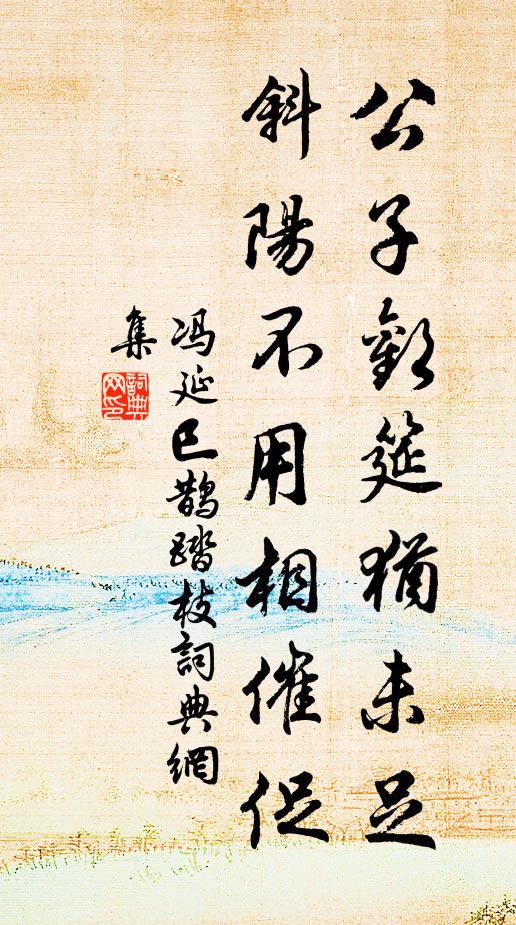 公子歡筵猶未足
斜陽不用相催促
冯延巳鵲踏枝詞典網
集
詞典
网印